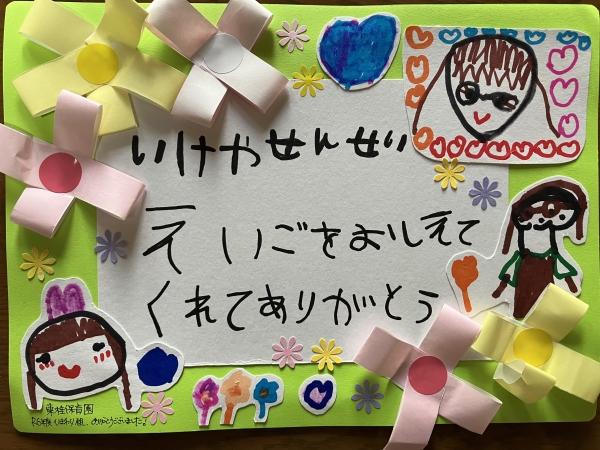 いけやせんせい
えいごをおしえて
くれてありがとう
東桂保育園
R6年度 ひまわり組 ありがとうございました。